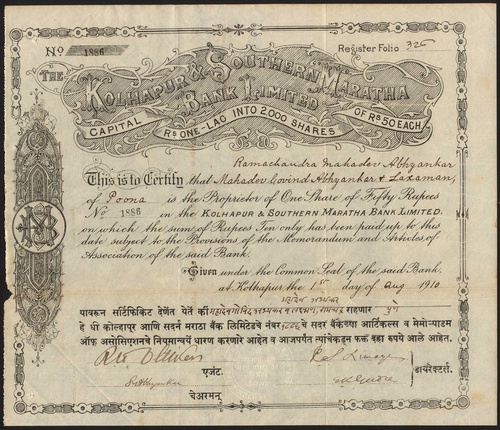 No 1886
Register Folio 325
THE
KOLHAPUR & SOUTHERN MARATHA
BANK LIMITED
CAPITAL Rs ONE-LAC INTO 2,000 SHARES OF RS 50 EACH.
Ramachandra Mahadev Abhyankar
This is to Certify that Mahadev Govind Abhyankar & Laxaman,
of Poona is the Proprietor of One Share of Fifty Rupees
No 1886 in the KOLHAPUR & SOUTHERN MARATHA BANK LIMITED.
on which the sum of Rupees Ten only has been paid up to this
date subject to the Provisions of the Memorandum and Articles of
Association of the said Bank.
Given under the Common Seal of the said Bank.
at Kolhapur the 1st day of Aug 1910
महादेव अभ्यंकर
यावरून सर्टिफिकिट देणेंत येतें कीं महादेव गोविंद अभ्यंकर व लक्ष्मण, रामचंद्र राहणार पुणे
हे धी कोल्हापूर आणि सदर्न मराठा बँक लिमिटेडचे नंबर १८८६ चे सदर बँकेच्या आर्टिकल्स व मेमॉर्‍याडम
ऑफ असोसिएशनचे नियमान्वयें धारण करणार आहेत व आजपर्यंत त्यांचेकडून फक्त दहा रुपये आले आहेत.
एजंट.
डायरेक्टर्स.
चेअरमन